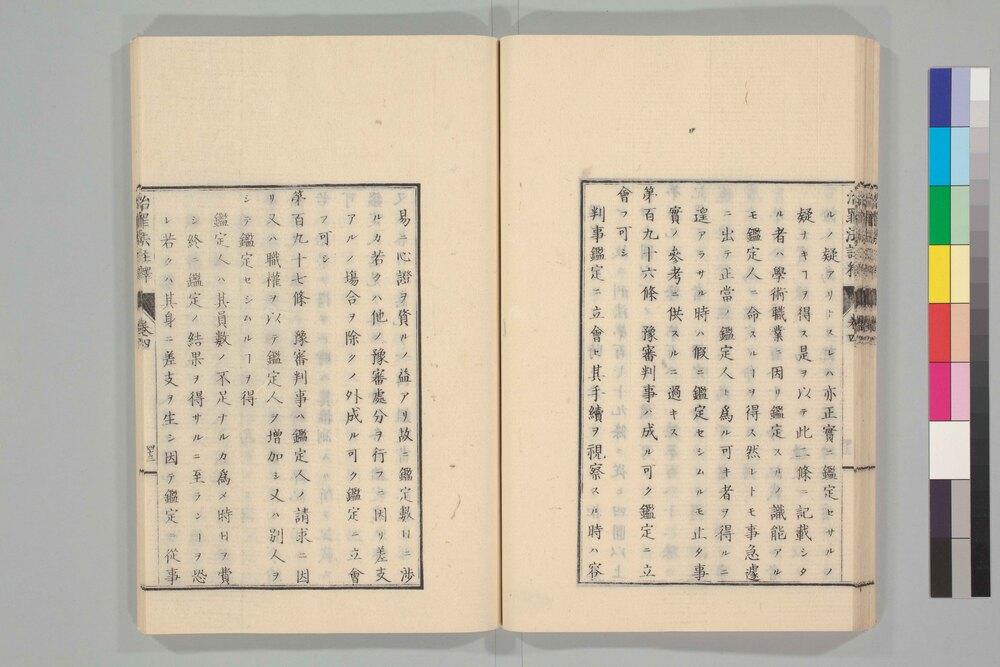 ルノ疑アリトスレハ亦正實ニ鑑定セサルノ
疑ナキヿヲ得ス是ヲ以テ此二條ニ記載シタ
ル者ハ學術職業ニ因リ鑑定スルノ識能アル
モ鑑定人ニ命スルヿヲ得ス然レトモ事急遽
ニ出テ正當鑑定人ト爲ル可キ者ヲ得ルニ
遑アラサル時ハ假ニ鑑定セシムルモ止タ事
實ノ參考ニ供スルニ過キス
第百九十六條 豫審判事ハ成ル可ク鑑定ニ立
會フ可シ
判事鑑定ニ立會ヒ其手續ヲ視察スル時ハ容
治罪法註釋 卷四
易ニ心證ヲ資ルノ益アリ故ニ鑑定數日ニ渉
ルカ若クハ他ノ豫審處分ヲ行フニ因リ差支
アルノ塲合ヲ除クノ外成ル可ク鑑定ニ立會
フ可シ
第百九十七條 豫審判事ハ鑑定人ノ請求ニ因
リ又ハ職權ヲ以テ鑑定人ヲ增加シ又ハ別人ヲ
シテ鑑定セシムルヿヲ得
鑑定人ハ其員數ノ不足ナルカ爲メ時日ヲ費
シ終ニ鑑定ノ結果ヲ得サルニ至ランヿヲ恐
レ若クハ其身ニ差支ヲ生シ因テ鑑定ニ從事
治罪法註釋 卷四